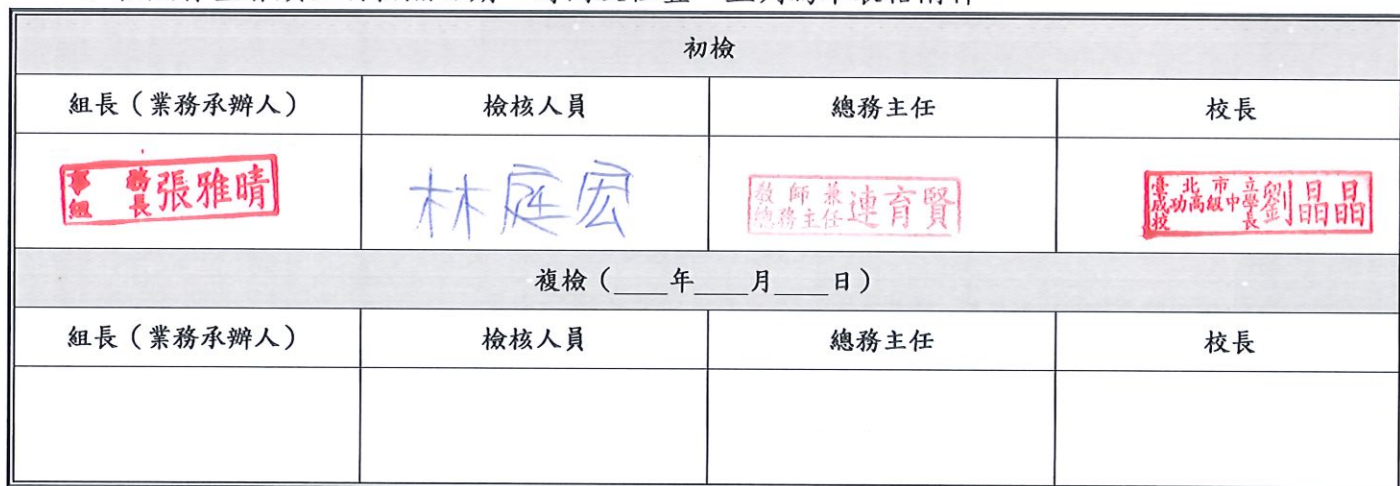 初檢
組長（業務承辦人） 檢核人員 總務主任 校長
事務組長 張雅晴 林庭宏 教師兼總務主任 連育賢 臺北市立成功高級中學校長 劉晶晶
複檢（____年____月____日）
組長（業務承辦人） 檢核人員 總務主任 校長